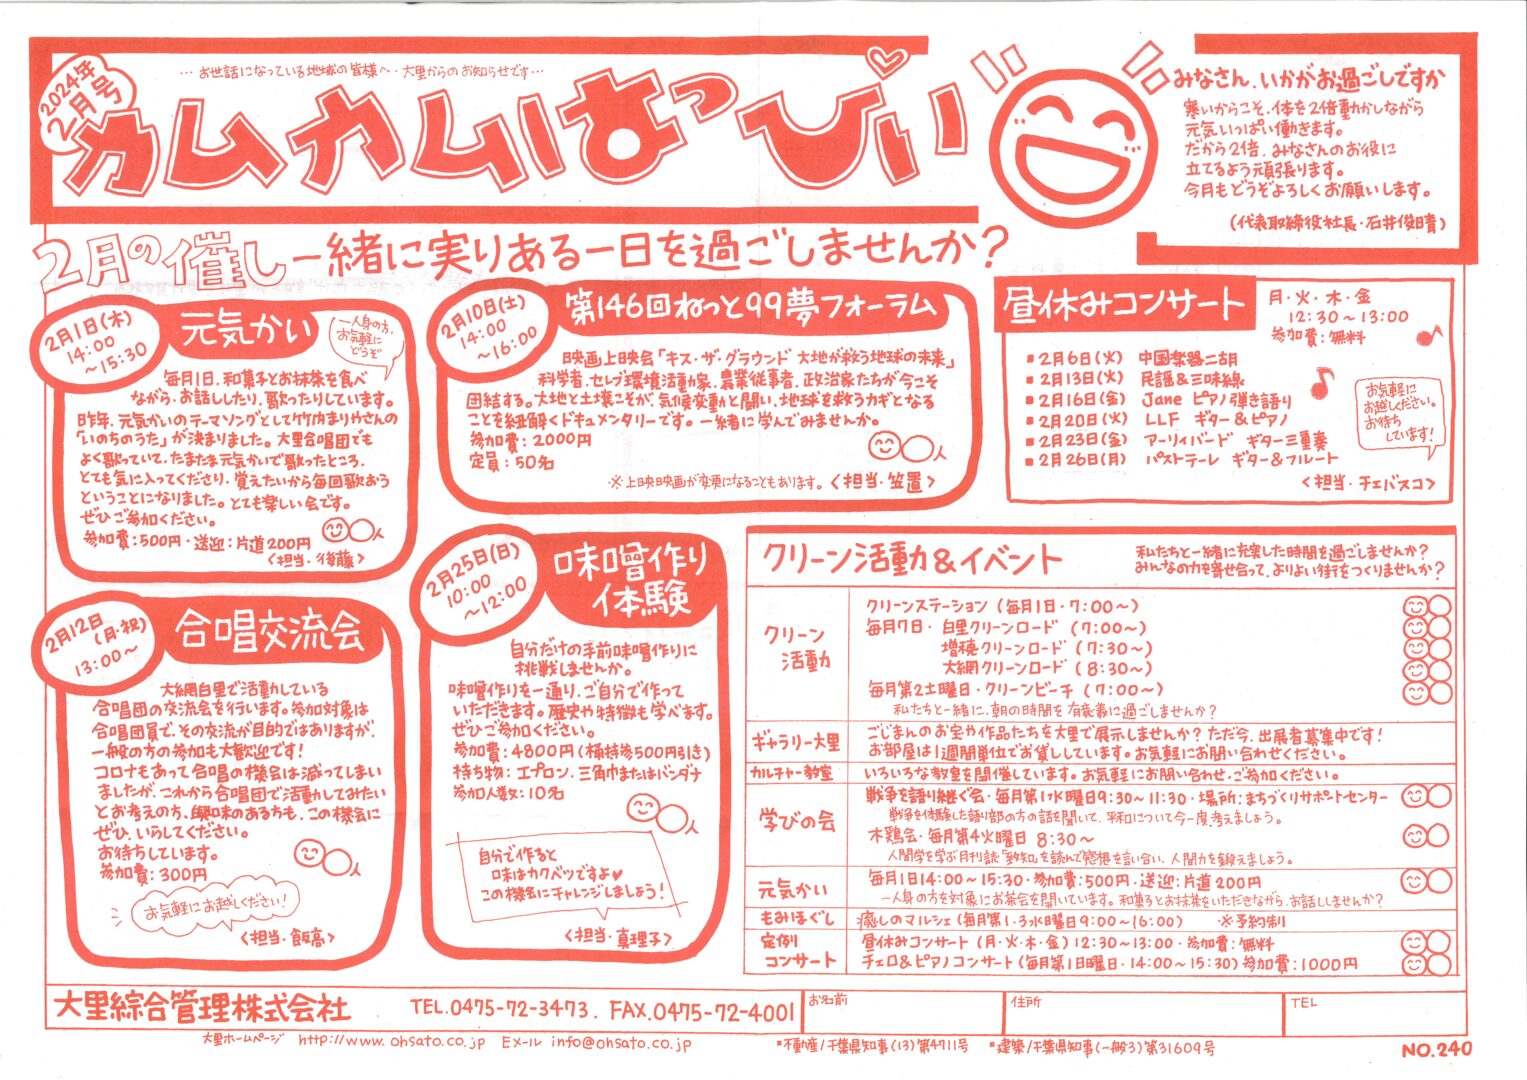 2024年
2月号
…お世話になっている地球の皆様へ・大里からのお知らせです…
カムカムはっぴぃ
みなさん、いかがお過ごしですか
寒いからこそ、体を2倍動かしながら
元気いっぱい働きます。
だから2倍、みなさんのお役に
立てるよう頑張ります。
今月もどうぞよろしくお願いします。
(代表取締役社長・石井俊晴)
2月の催し 一緒に実りある一日を過ごしませんか?
2月1日(木)
14:00
～15:30
元気かい
一人身の方、
お気軽に
どうぞ
毎月1日、和菓子とお抹茶を食べ
ながら、お話ししたり、歌ったりしています。
昨年、元気かいのテーマソングとして竹内まりやさんの
「いのちのうた」が決まりました。大里合唱団でも
よく歌っていて、たまたま元気かいで歌ったところ、
とても気に入ってくださり、覚えたいから毎回歌おう
ということになりました。とても楽しい会です。
ぜひご参加ください。
参加費:500円・送迎:片道200円
人
<担当・後藤>
2月10日(土)
14:00
～16:00
第146回ねっと99夢フォーラム
映画上映会「キス・ザ・グラウンド 大地が救う地球の未来」
科学者、セレブ環境活動家、農業従事者、政治家たちが今こそ
団結する。大地と土壌こそが、気候変動と闘い、地球を救うカギとなる
ことを紐解くドキュメンタリーです。一緒に学んでみませんか。
参加費:2000円
定員:50名
人
※上映映画が変更になることもあります。<担当・笠置>
昼休みコンサート
月・火・木・金
12:30～13:00
参加費:無料
■2月6日(火) 中国楽器二胡
■2月13日(火) 民謡&三味線
■2月16日(金) Jane ピアノ弾き語り
■2月20日(火) LLF ギター&ピアノ
■2月23日(金) アーリィバード ギター三重奏
■2月26日(月) パストテーレ ギター&フルート
お気軽に
お越しください。
お待ち
しています!
<担当・チェバスコ>
2月12日
(月・祝)
13:00～
合唱交流会
大網白里で活動している
合唱団の交流会を行います。参加対象は
合唱団員で、その交流が目的ではありますが、
一般の方の参加も大歓迎です!
コロナもあって合唱の機会は減ってしまい
ましたが、これから合唱団で活動してみたい
とお考えの方、興味のある方も、この機会に
ぜひ、いらしてください。
お待ちしています。
参加費:300円
人
お気軽にお越しください!
<担当・飯高>
2月25日(日)
10:00
～12:00
味噌作り
体験
自分だけの手前味噌作りに
挑戦しませんか。
味噌作りを一通り、ご自分で作って
いただきます。歴史や特徴も学べます。
ぜひご参加ください。
参加費:4800円(桶持参500円引き)
持ち物:エプロン、三角巾またはバンダナ
参加人数:10名
人
自分で作ると
味はカクベツですよ♥
この機会にチャレンジしましょう!
<担当・真理子>
クリーン活動&イベント
私たちと一緒に充実した時間を過ごしませんか?
みんなの力を寄せ合って、よりよい街をつくりませんか?
クリーン
活動
クリーンステーション(毎月1日・7:00～)
毎月7日・白里クリーンロード (7:00～)
増穂クリーンロード (7:30～)
大網クリーンロード (8:30～)
毎月第2土曜日・クリーンビーチ (7:00～)
私たちと一緒に、朝の時間を有意義に過ごしませんか?
ギャラリー大里
ごじまんのお宝や作品たちを大里で展示しませんか?ただ今、出展者募集中です!
お部屋は1週間単位でお貸ししています。お気軽にお問い合わせください。
カルチャー教室
いろいろな教室を開催しています。お気軽にお問い合わせ・ご参加ください。
学びの会
戦争を語り継ぐ会・毎月第1水曜日9:30～11:30・場所:まちづくりサポートセンター
戦争を体験した語り部の方の話を聞いて、平和について今一度、考えましょう。
木鶏会・毎月第4火曜日 8:30～
人間学を学ぶ月刊誌「致知」を読んで感想を言い合い、人間力を鍛えましょう。
元気かい
毎月1日14:00～15:30・参加費:500円・送迎:片道200円
一人身の方を対象にお茶会を開いています。和菓子とお抹茶をいただきながら、お話ししませんか?
もみほぐし
癒しのマルシェ(毎月第1・3水曜日9:00～16:00) ※予約制
定例
コンサート
昼休みコンサート(月・火・木・金)12:30～13:00・参加費:無料
チェロ&ピアノコンサート(毎月第1日曜日・14:00～15:30)参加費:1000円
大里綜合管理株式会社
TEL.0475-72-3473. FAX.0475-72-4001
お名前
住所
TEL
大里ホームページ http://www.ohsato.co.jp Eメール info@ohsato.co.jp
■不動産/千葉県知事(13)第4711号 ■建築/千葉県知事(一般3)第31609号
NO.240